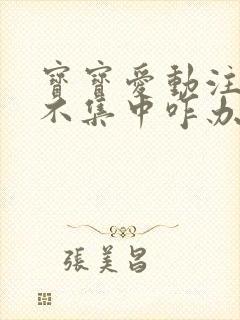 寶寶愛動注
不集中咋办
張美昌